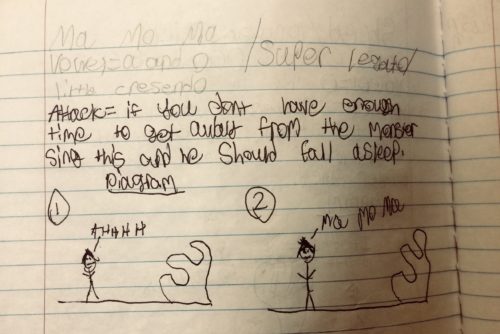 Ma Mo Ma
Vowel=a and o /Super Legato/
little cresendo
Attack= if you dont have enough
time to get away from the monster
sing this and he should fall asleep.
Diagram
1 2
AHHHH Ma Mo Ma